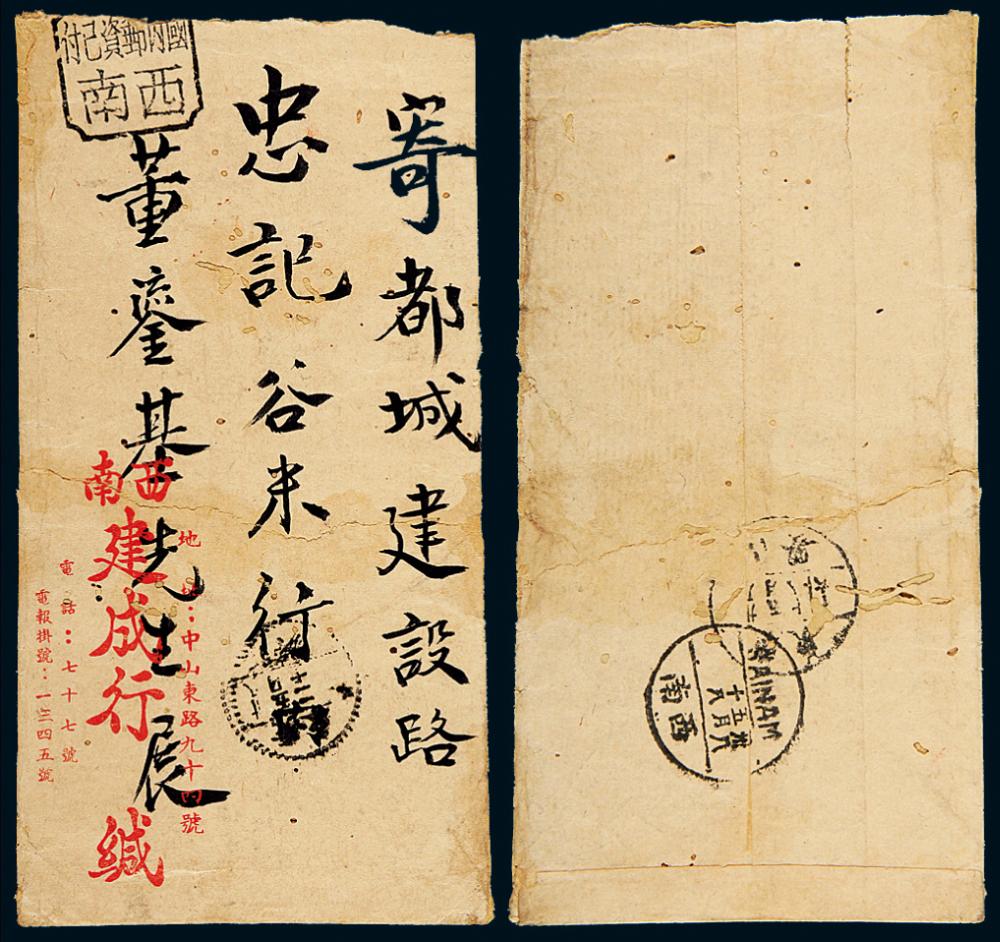 國內郵資已付
西南
寄都城建設路
忠記谷米行
董鎏基先生 展
地址:中山東路九十四號
西南
建成行 緘
電話:七十七號
電報掛號:一三四五號
西南